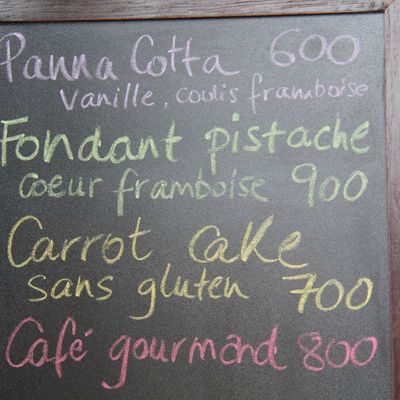 Panna Cotta 600
vanille, coulis framboise
Fondant pistache
coeur framboise 900
Carrot cake
sans gluten 700
Café gourmand 800